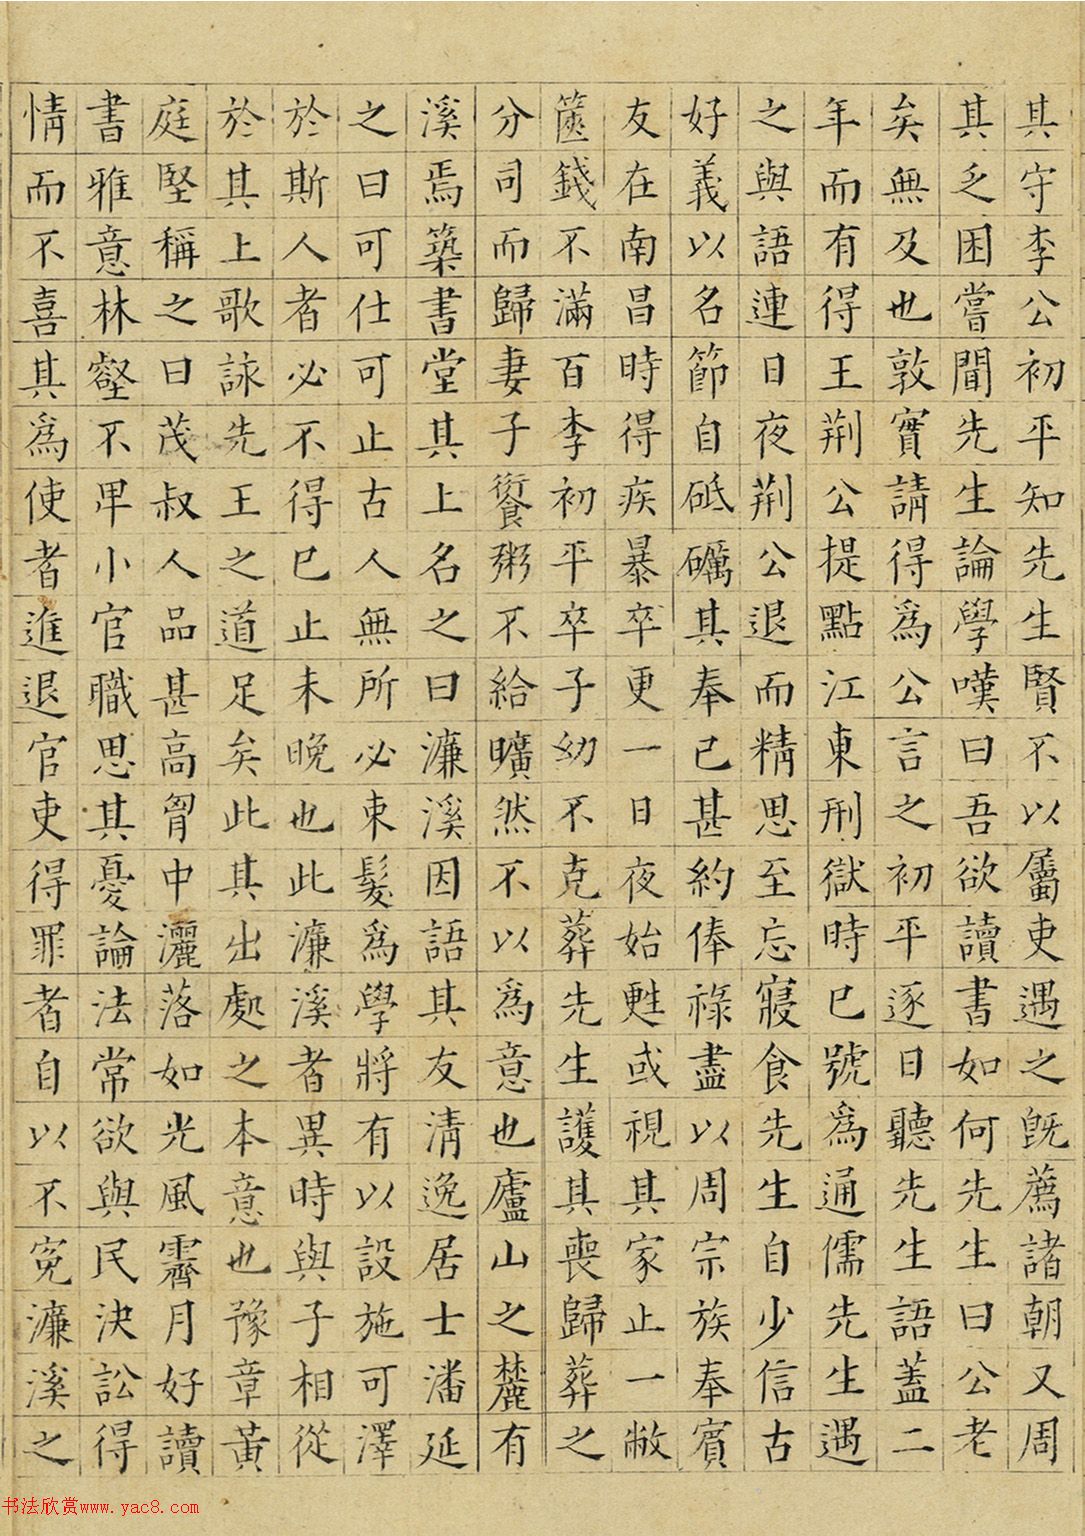 其守李公初平知先生賢不以屬吏遇之旣薦諸朝又周
其乏困嘗聞先生論學嘆曰吾欲讀書如何先生曰公老
矣無及也敦實請得為公言之初平逐日聽先生語蓋二
年而有得王荆公提點江東刑獄時已號為通儒先生遇
之與語連日夜荆公退而精思至忘寢食先生自少信古
好義以名節自砥礪其奉己甚約俸祿盡以周宗族奉賓
友在南昌時得疾暴卒更一日夜始甦或視其家止一敝
篋錢不滿百李初平卒子幼不克葬先生護其喪歸葬之
分司而歸妻子饘粥不給曠然不以為意也廬山之麓有
溪焉築書堂其上名之曰濂溪因語其友清逸居士潘延
之曰可仕可止古人無所必束髮為學將有以設施可澤
於斯人者必不得已止未晚也此濂溪者異時與子相從
於其上歌詠先王之道足矣此其出處之本意也豫章黃
庭堅稱之曰茂叔人品甚高胷中灑落如光風霽月好讀
書雅意林壑不卑小官職思其憂論法常欲與民決訟得
情而不喜其為使者進退官吏得罪者自以不冤濂溪之
书法欣赏www.yac8.com